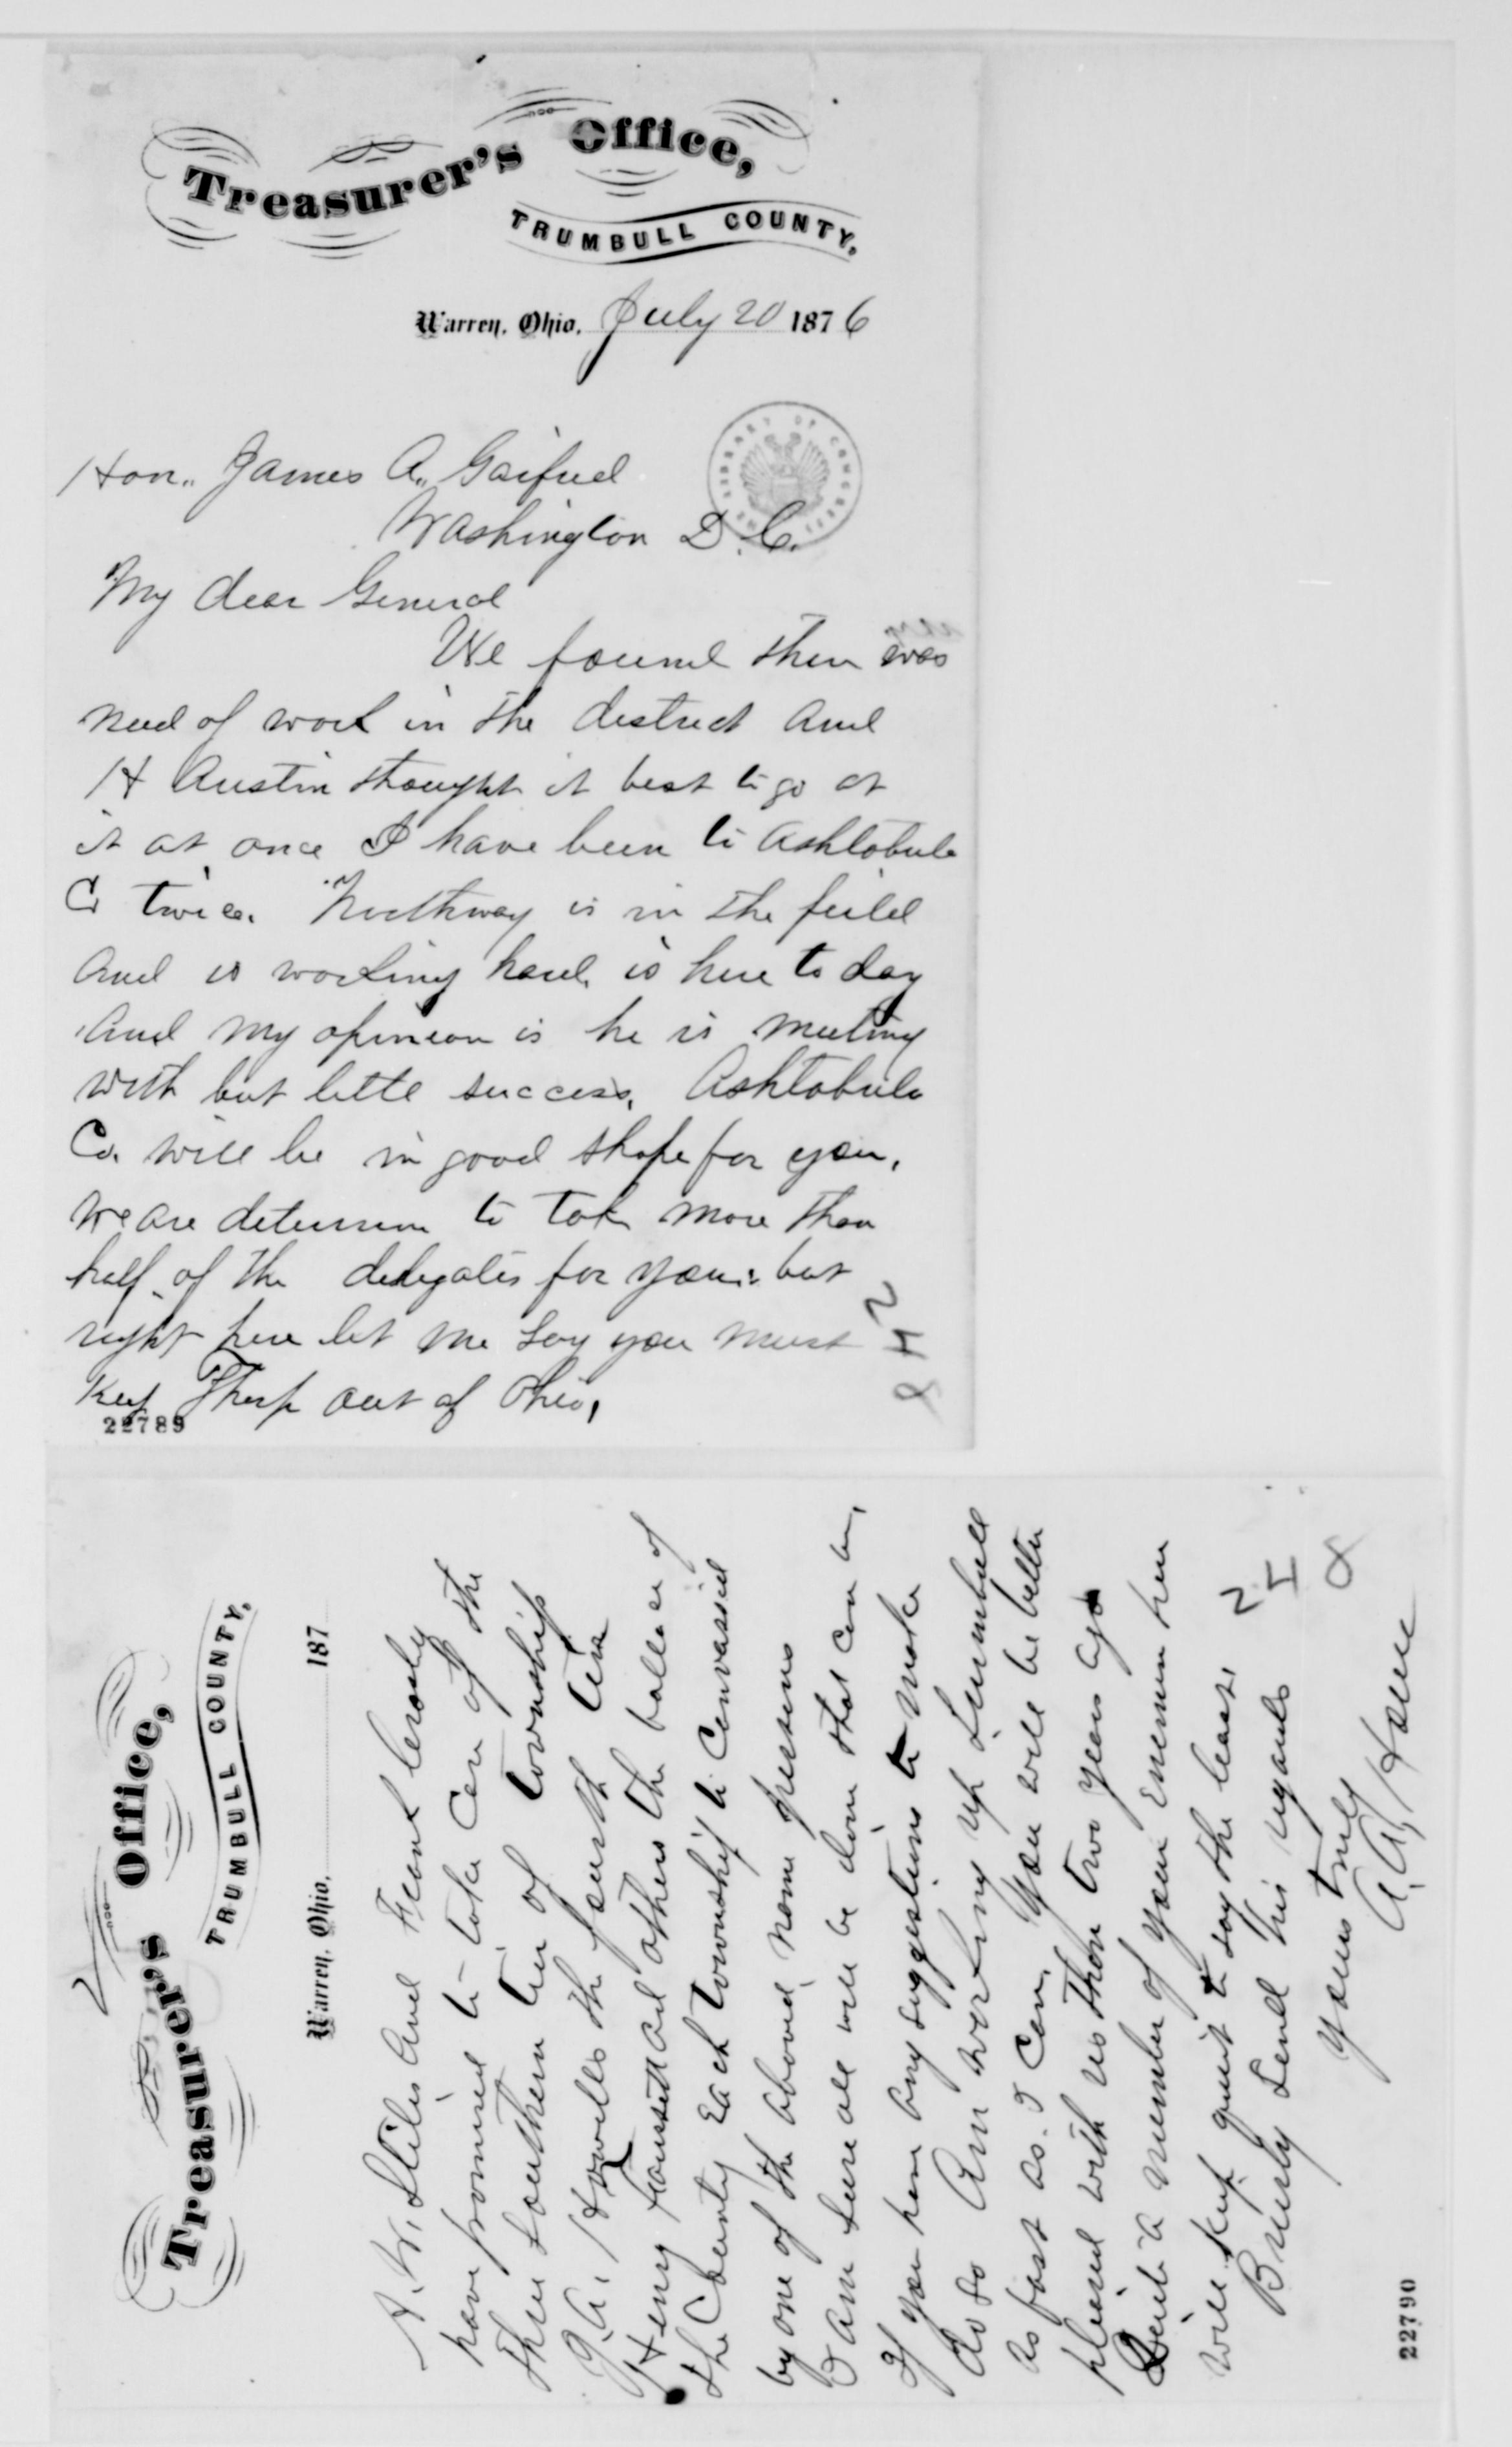 Treasurer's Office,
TRUMBULL COUNTY,
Warren, Ohio, July 20 1876
Hon. James A. Garfield
Washington D.C.
My dear General
We found there was
need of work in the district and
H Austin thought it best to go at
it at once I have been to Ashtabula
Co twice. Northway is in the feild
and is working hard, is here to day
and my opinion is he is meeting
with but little success, Ashtabula
Co. will be in good shape for you,
we are determin to take more than
half of the delegates for you; but
right here let me say you must
Keep Thorp out of Ohio,
22789
Treasurer's Office,
TRUMBULL COUNTY,
Warren, Ohio, 187
Stiles and Frank Crosby
have promised to take care of the
three southern tier of townships
Howells the fourth tier
Henry Fawcett and others the ballance of
the County Each township to Canvassed
by one of the above name persons
I am sure all will be done that can be,
If you have any suggestions to make
do so Am working up Trumbull
as fast as I can, You will be better
pleased with us than two years ago
Quite a number of your enemies here
will keep quiet to say the least,
Brisby send his regards
Yours truly
22790